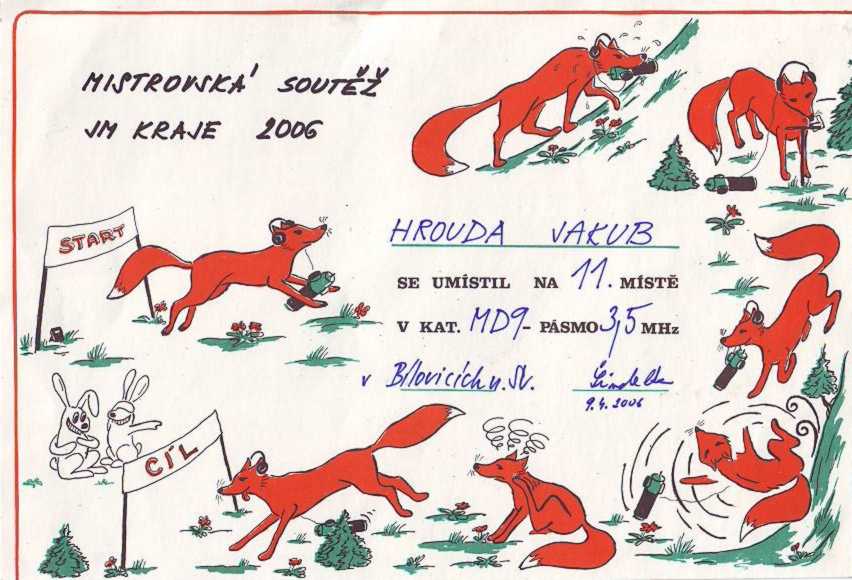 MISTROVSKÁ SOUTĚŽ
JM KRAJE 2006
START
HROUDA JAKUB
SE UMÍSTIL NA 11. MÍSTĚ
V KAT. MD9 - PÁSMO 3,5 MHz
v Bílovicích n. Sv.
9.4.2006
CÍL